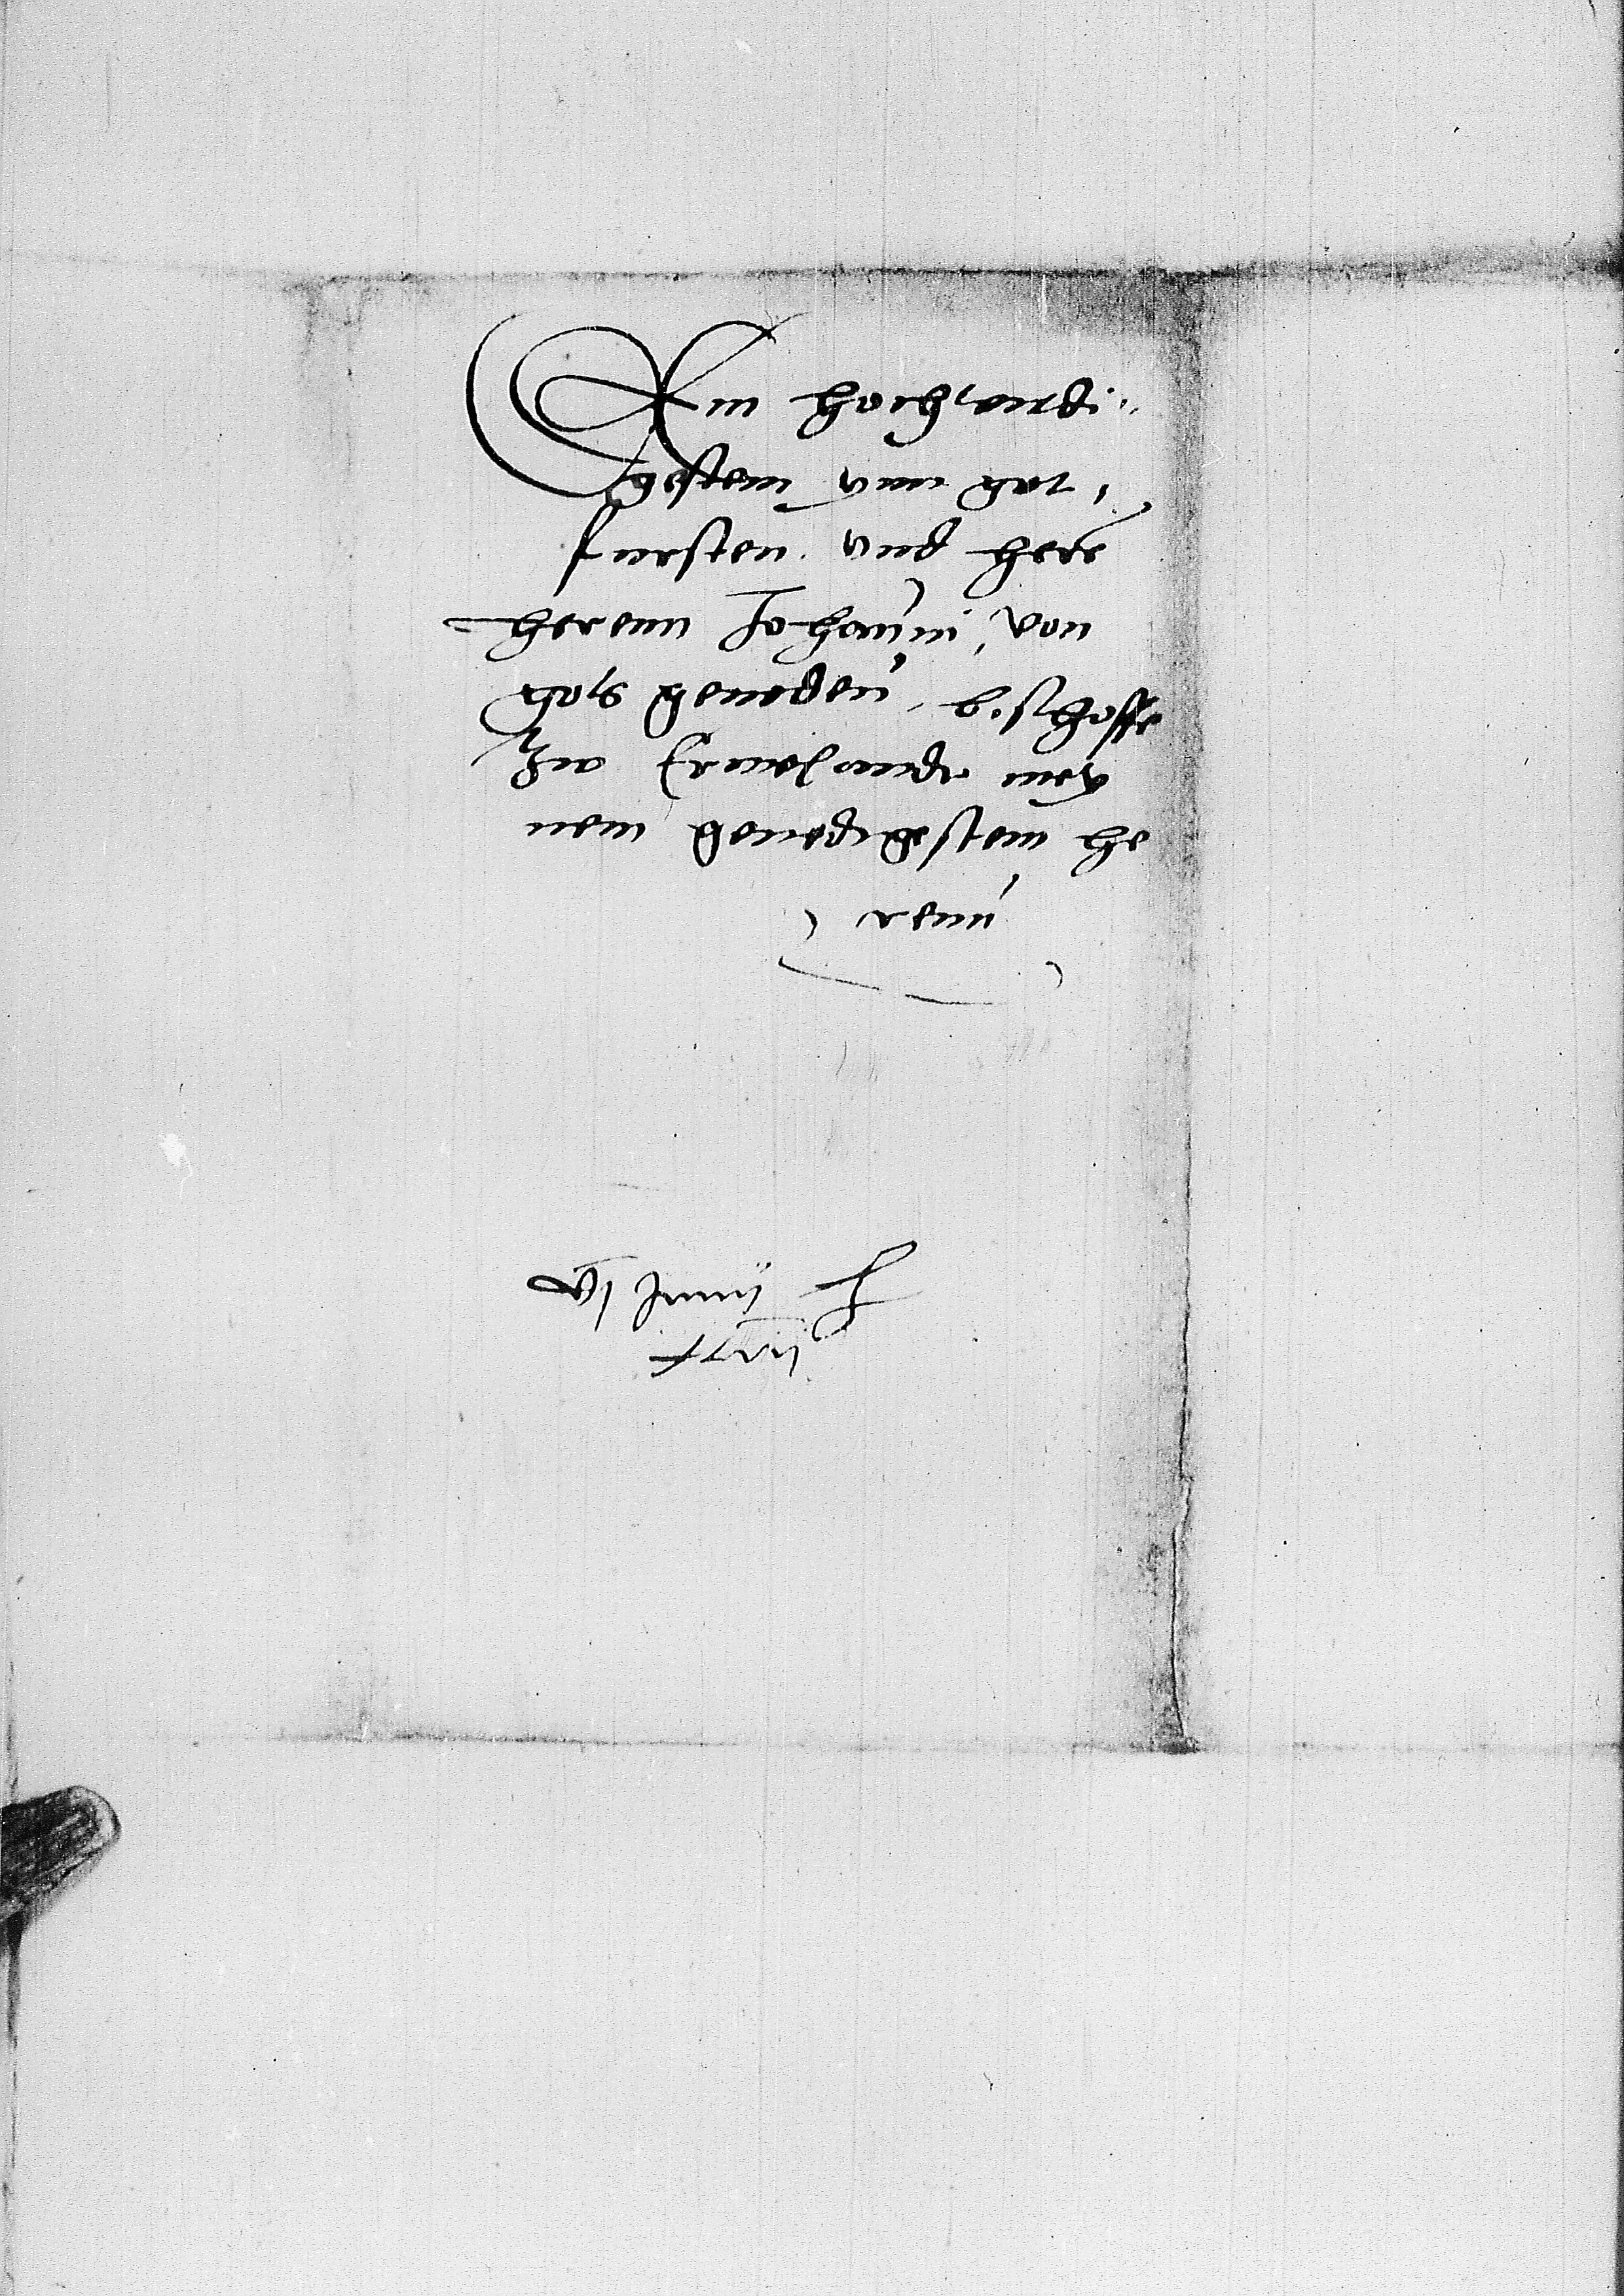 Am hochwirdi-
gestem ynn got
fursten vnd here
herenn Johanni, von
gots genedenn bischoffe
Zw Ermelande mey
nem genedigestem he
renn
VI Junij